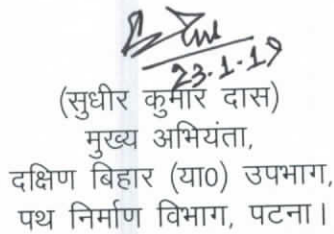 23.1.19
(सुधीर कुमार दास)
मुख्य अभियंता,
दक्षिण बिहार (या0) उपभाग,
पथ निर्माण विभाग, पटना।